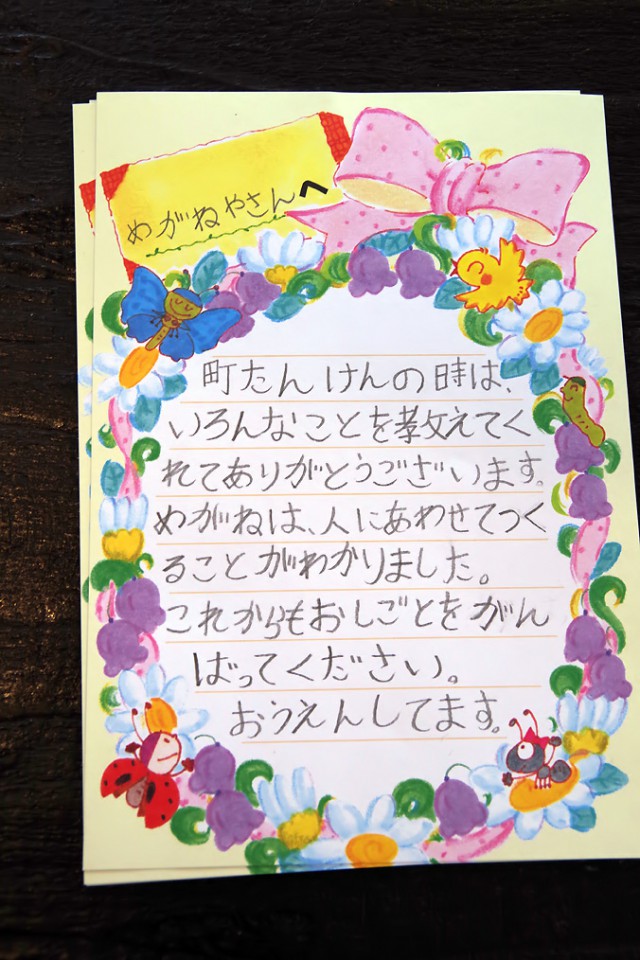 めがねやさんへ
町たんけんの時は、
いろんなことを教えてく
れてありがとうございます。
めがねは、人にあわせてつく
ることがわかりました。
これからもおしごとをがん
ばってください。
おうえんしてます。